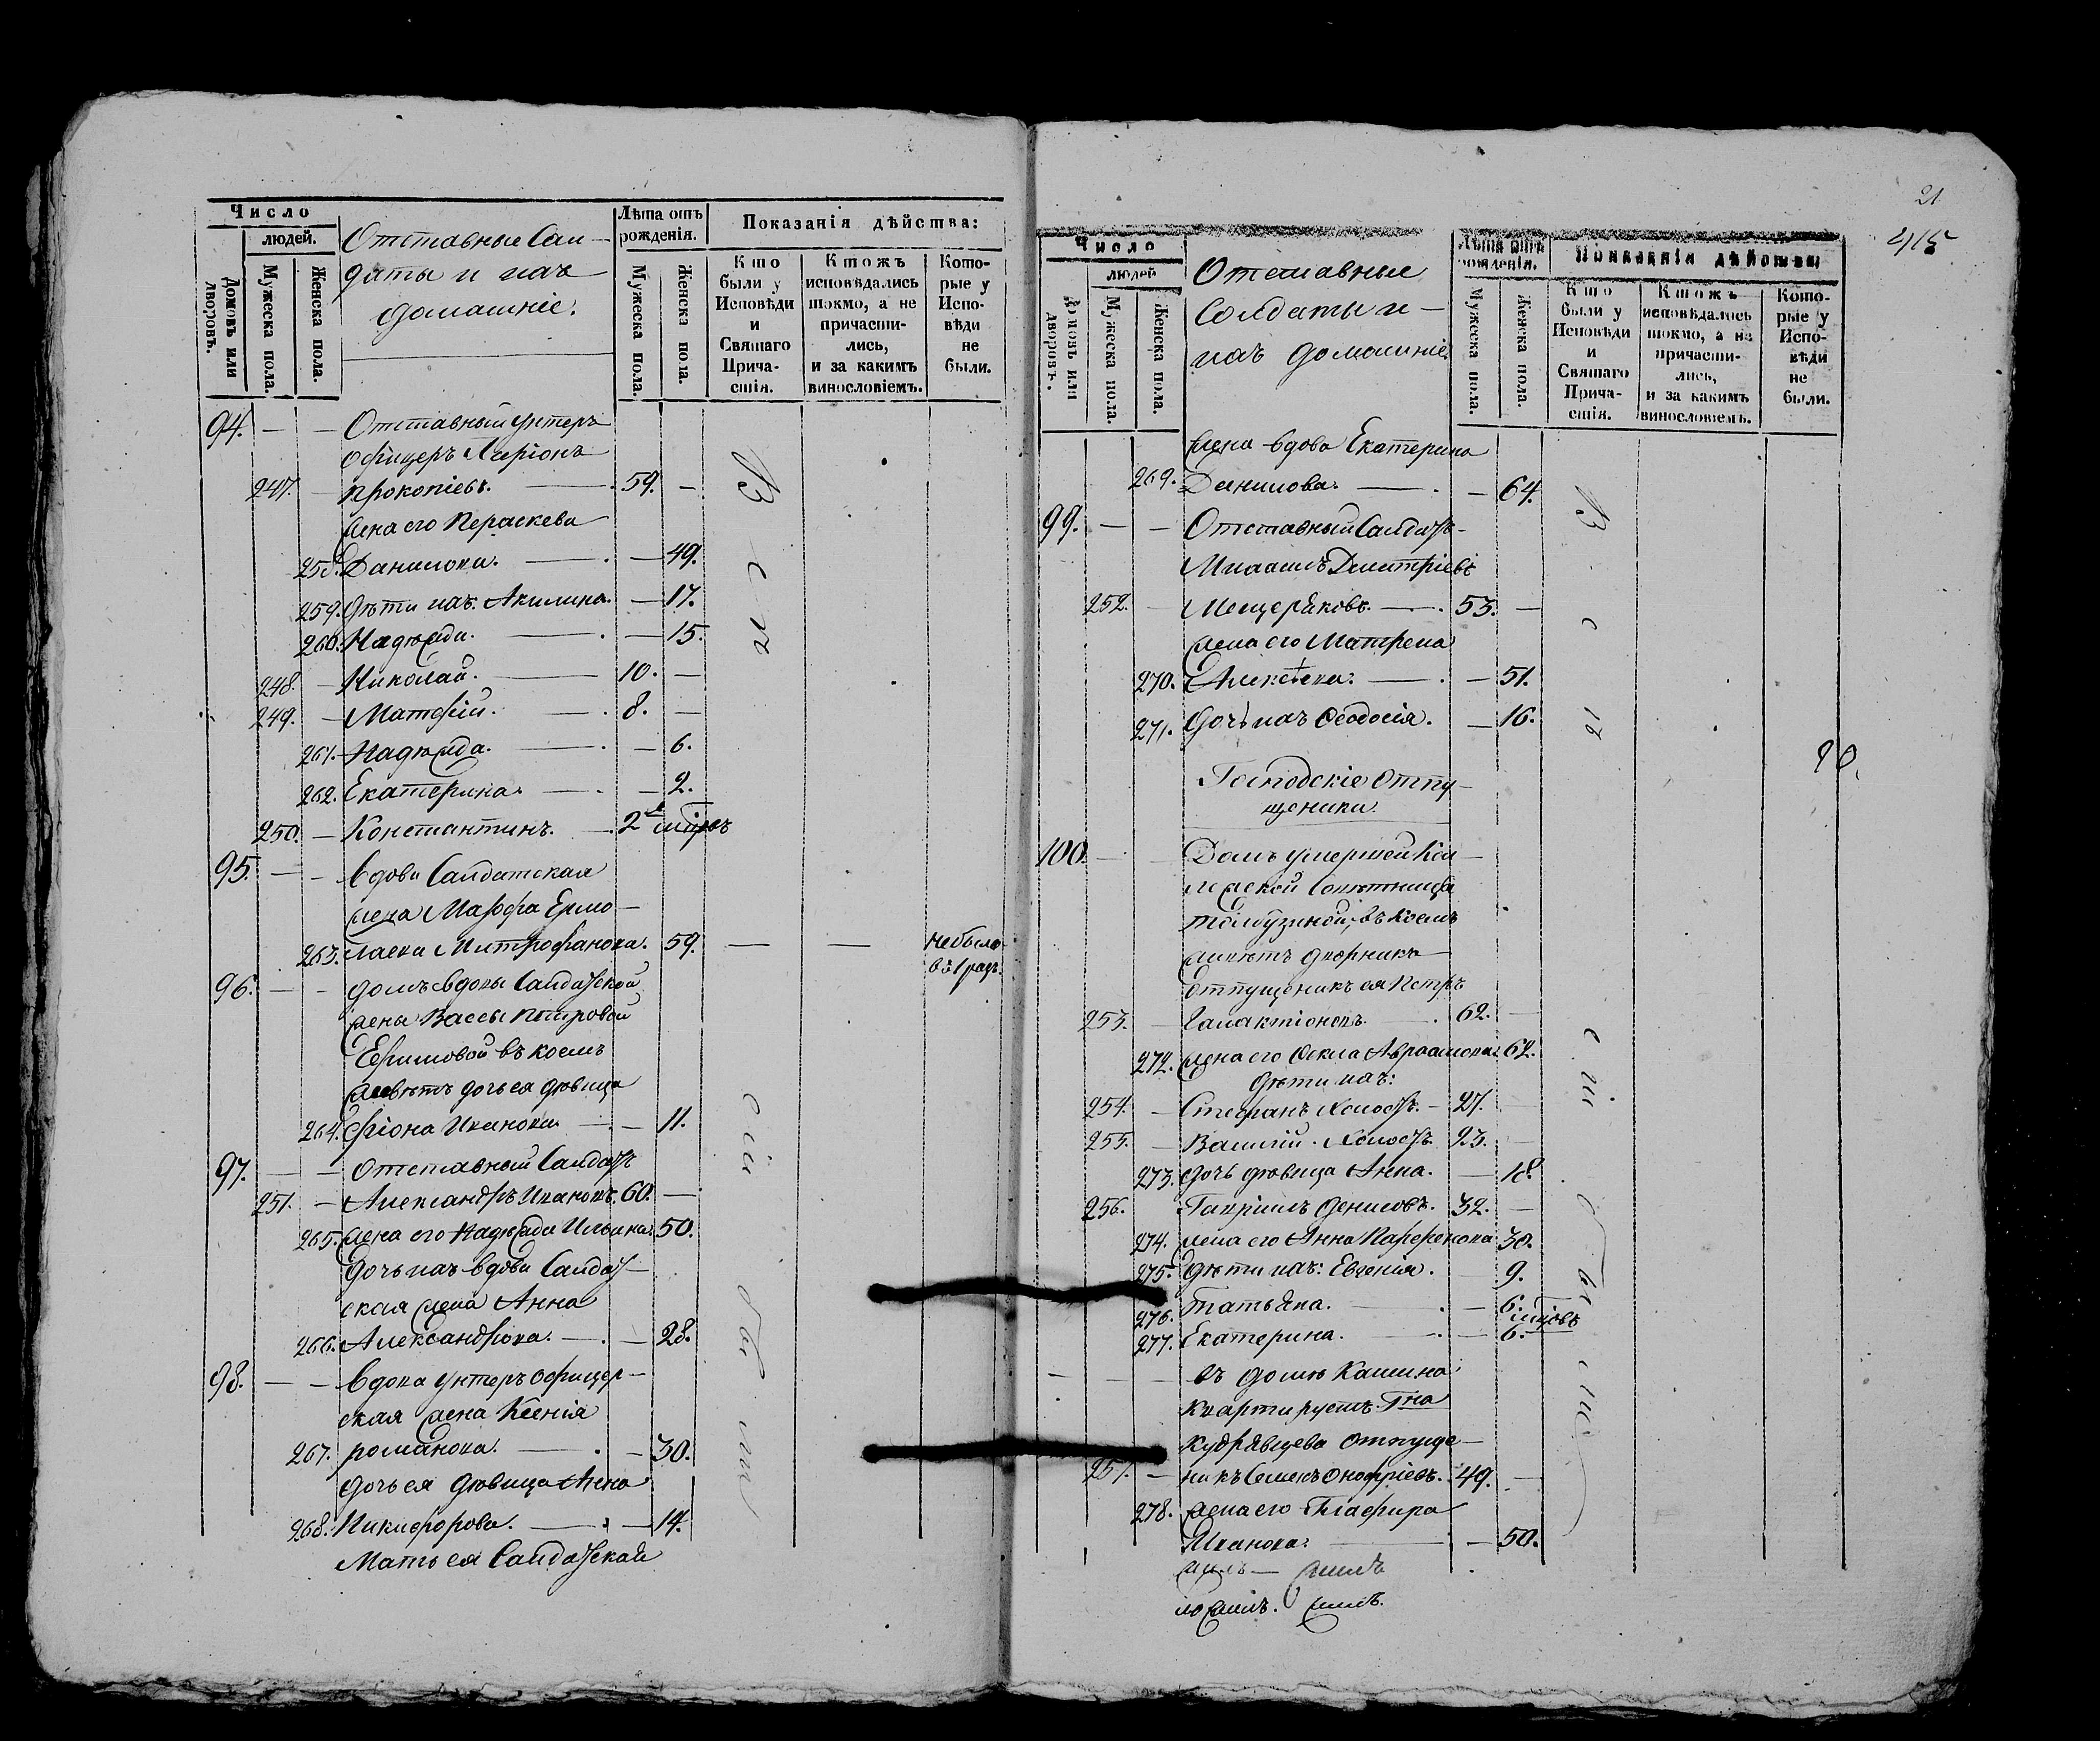 Число
людей.
Домовъ или дворовъ.
Мужеска пола.
Женска пола.
Отставные Сал-
даты и ихъ
домашніе.
Лѣта отъ
рожденія.
Мужеска пола.
Женска пола.
Показанія дѣйства:
Кто
были у
Исповѣди
и
Святаго
Прича-
стія.
Ктожъ
исповѣдались
токмо, а не
причасти-
лись,
и за какимъ
винословіемъ.
Кото-
рые у
Испо-
вѣди
не
были.
94. — — Отставный унтеръ
офицеръ Ларіонъ
247. — Прокопіевъ. — 59. —
жена его Пераскева
258. Данилова. — — 49.
259. Дѣти ихъ: Акилина. — 17.
260. Надежда. — — 15.
248. — Николай. — 10. —
249. — Матфій. — 8. —
261. Надежда. — — 6.
262. Екатерина. — — 2.
250. — Константинъ. — 2
95. — — Вдова Салдатская
жена Марфа Ермо-
263. лаева Митрофанова. 59. — — не была
96. — — Домъ вдовы Салдатской
жены Вассы Петровой
Ефимовой въ коемъ
живетъ дочь ея дѣвица
264. Иванова — — 11.
97. — — Отставный Салдатъ
251. — Александръ Ивановъ. 60. —
265. жена его Надежда Ильина. 50.
Дочь ихъ вдова Салдат-
ская жена Анна
266. Александрова. — — 28.
98. — — Вдова унтеръ офицер-
ская жена Ксенія
267. Романова. — — 30.
Дочь ея дѣвица Анна
268. Никифорова. — — 14.
Мать ея Салдатская
Всѣ
сіи
бы
21
415
Число
людей
Домовъ или дворовъ.
Мужеска пола.
Женска пола.
Отставные
Солдаты и
ихъ домашніе.
Лѣта отъ
рожденія.
Мужеска пола.
Женска пола.
Показанія дѣйства
Кто
были у
Исповѣди
и
Святаго
Прича-
стія.
Ктожъ
исповѣдалось
токмо, а не
причасти-
лись,
и за какимъ
винословіемъ.
Кото-
рые у
Испо-
вѣди
не
были.
жена вдова Екатерина
269. Данилова. — — 64.
99. — — Отставный Салдатъ
Михаилъ Дмитріевъ
252. — Мещеряковъ. — 53. —
жена его Матрена
270. Алексѣева. — — 51.
271. Дочь ихъ Ѳеодосія. — 16.
Господскіе Отпу-
щеники.
90.
100. — — Домъ умершей Кол-
лежской Совѣтницы
Толбузиной, въ коемъ
живетъ дворникъ
отпущеникъ ея Петръ
253. — Галактіоновъ. — 62. —
272. жена его Ѳекла Авраамова. 62.
Дѣти ихъ:
254. — Стефанъ Холостъ. — 27. —
255. — Василій Холостъ. 23. —
273. Дочь дѣвица Анна. — 18.
256. Гавріилъ Денисовъ. 32. —
274. жена его Анна Парфенова 30.
275. Дѣти ихъ: Евгенія. — 9.
276. Татьяна. — — 6.
277. Екатерина. — — 6.
— — — въ домѣ Кашина
квартируетъ Гна
Кудрявцева отпуще-
257. — никъ Семенъ Онофріевъ. 49. —
278. жена его Глафира
Иванова. — — 50.
Всѣ
сіи